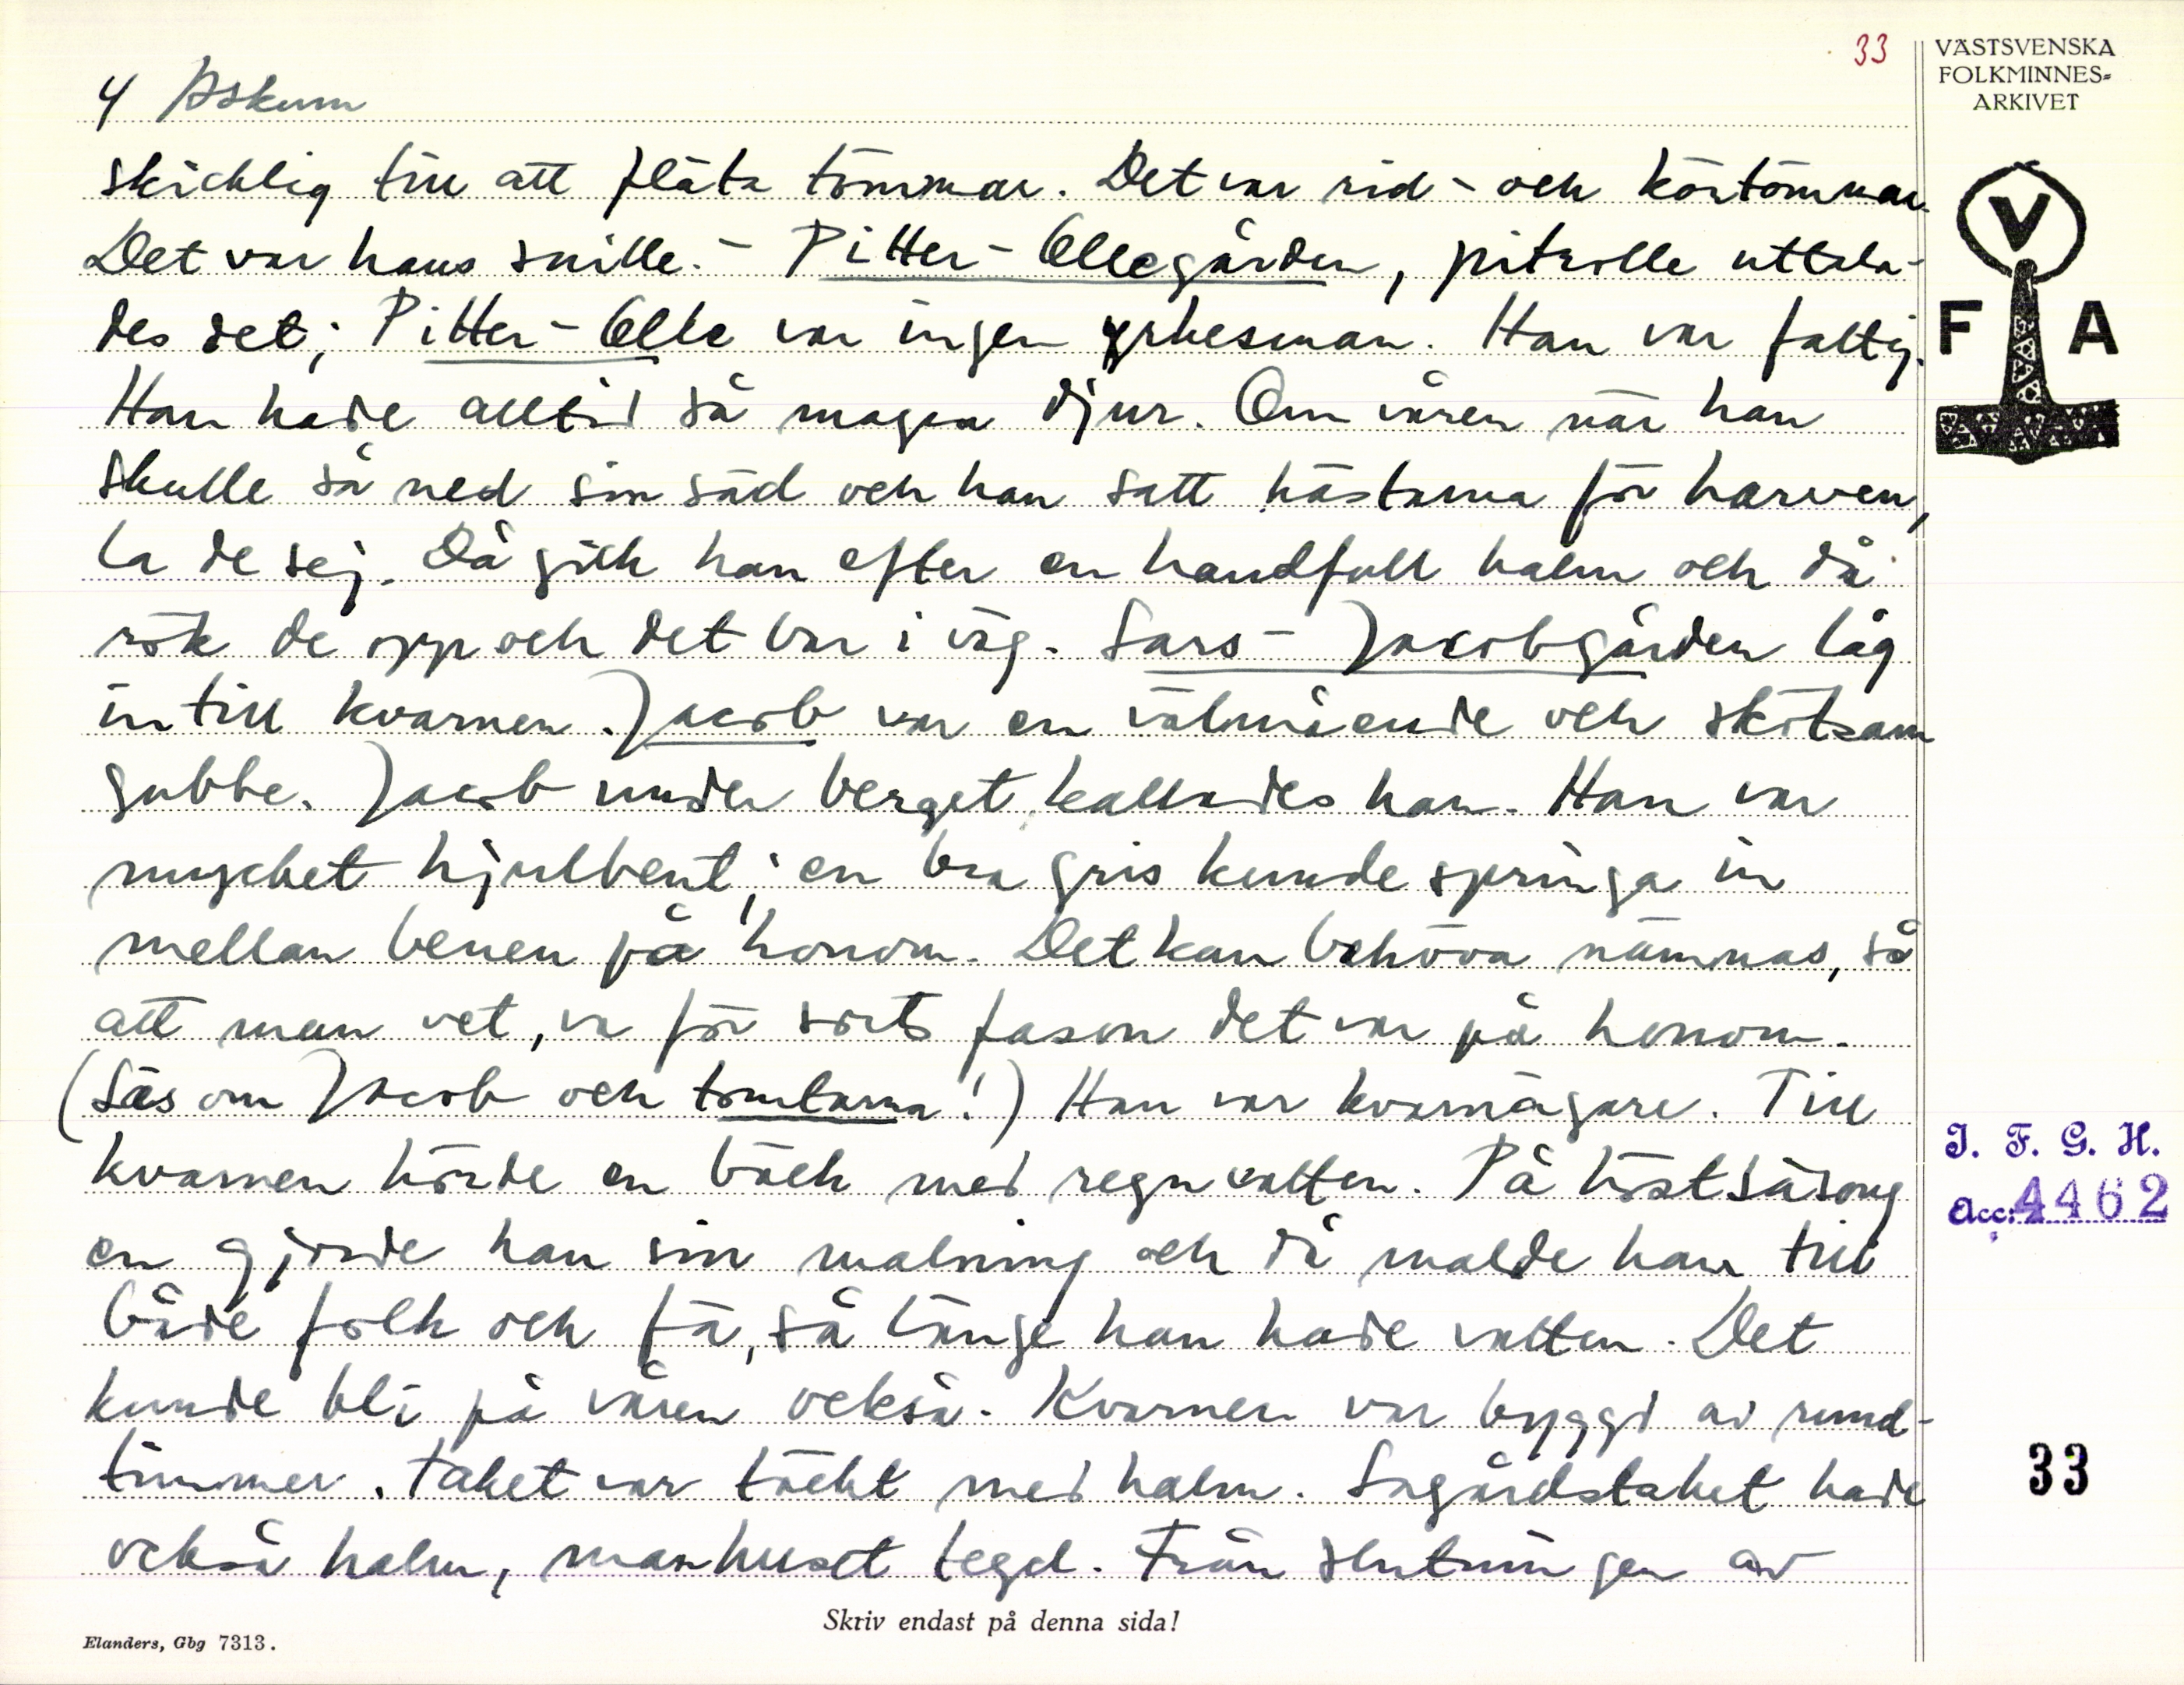 33
VÄSTSVENSKA
FOLKMINNES-
ARKIVET
4 Askum
skicklig till att fläta tömmar. Det var rid- och körtömmar.
Det var hans snille. - Pitter-Ollegården, pitrolle uttala-
des det; Pitter-Olle var ingen yrkesman. Han var fattig.
Han hade alltid så magra djur. Om våren när han
skulle så ned sin säd och han satt hästarna för harven,
la de sej. Då gick han efter en handfull halm och då
rök de opp och det bar i väg. Lars-Jacobgården låg
intill kvarnen. Jacob var en välmående och skötsam
gubbe. Jacob under berget kallades han. Han var
mycket hjulbent; en bra gris kunde springa in
mellan benen på honom. Det kan behöva nämnas, så
att man vet, va för sorts fason det var på honom.
(Läs om Jacob och tomtarna!) Han var kvarnägare. Till
kvarnen hörde en bäck med regnvatten. På höstsäsong
en gjorde han sin malning och då malde han till
både folk och fä, så länge han hade vatten. Det
kunde bli på våren också. Kvarnen var byggd av rund-
timmer. Taket var täckt med halm. Lagårdstaket hade
också halm, manhuset tegel. Från slutningen av
V
F A
I. F. G. H.
Acc: 4462
33
Skriv endast på denna sida!
Elanders, Gbg 7313.